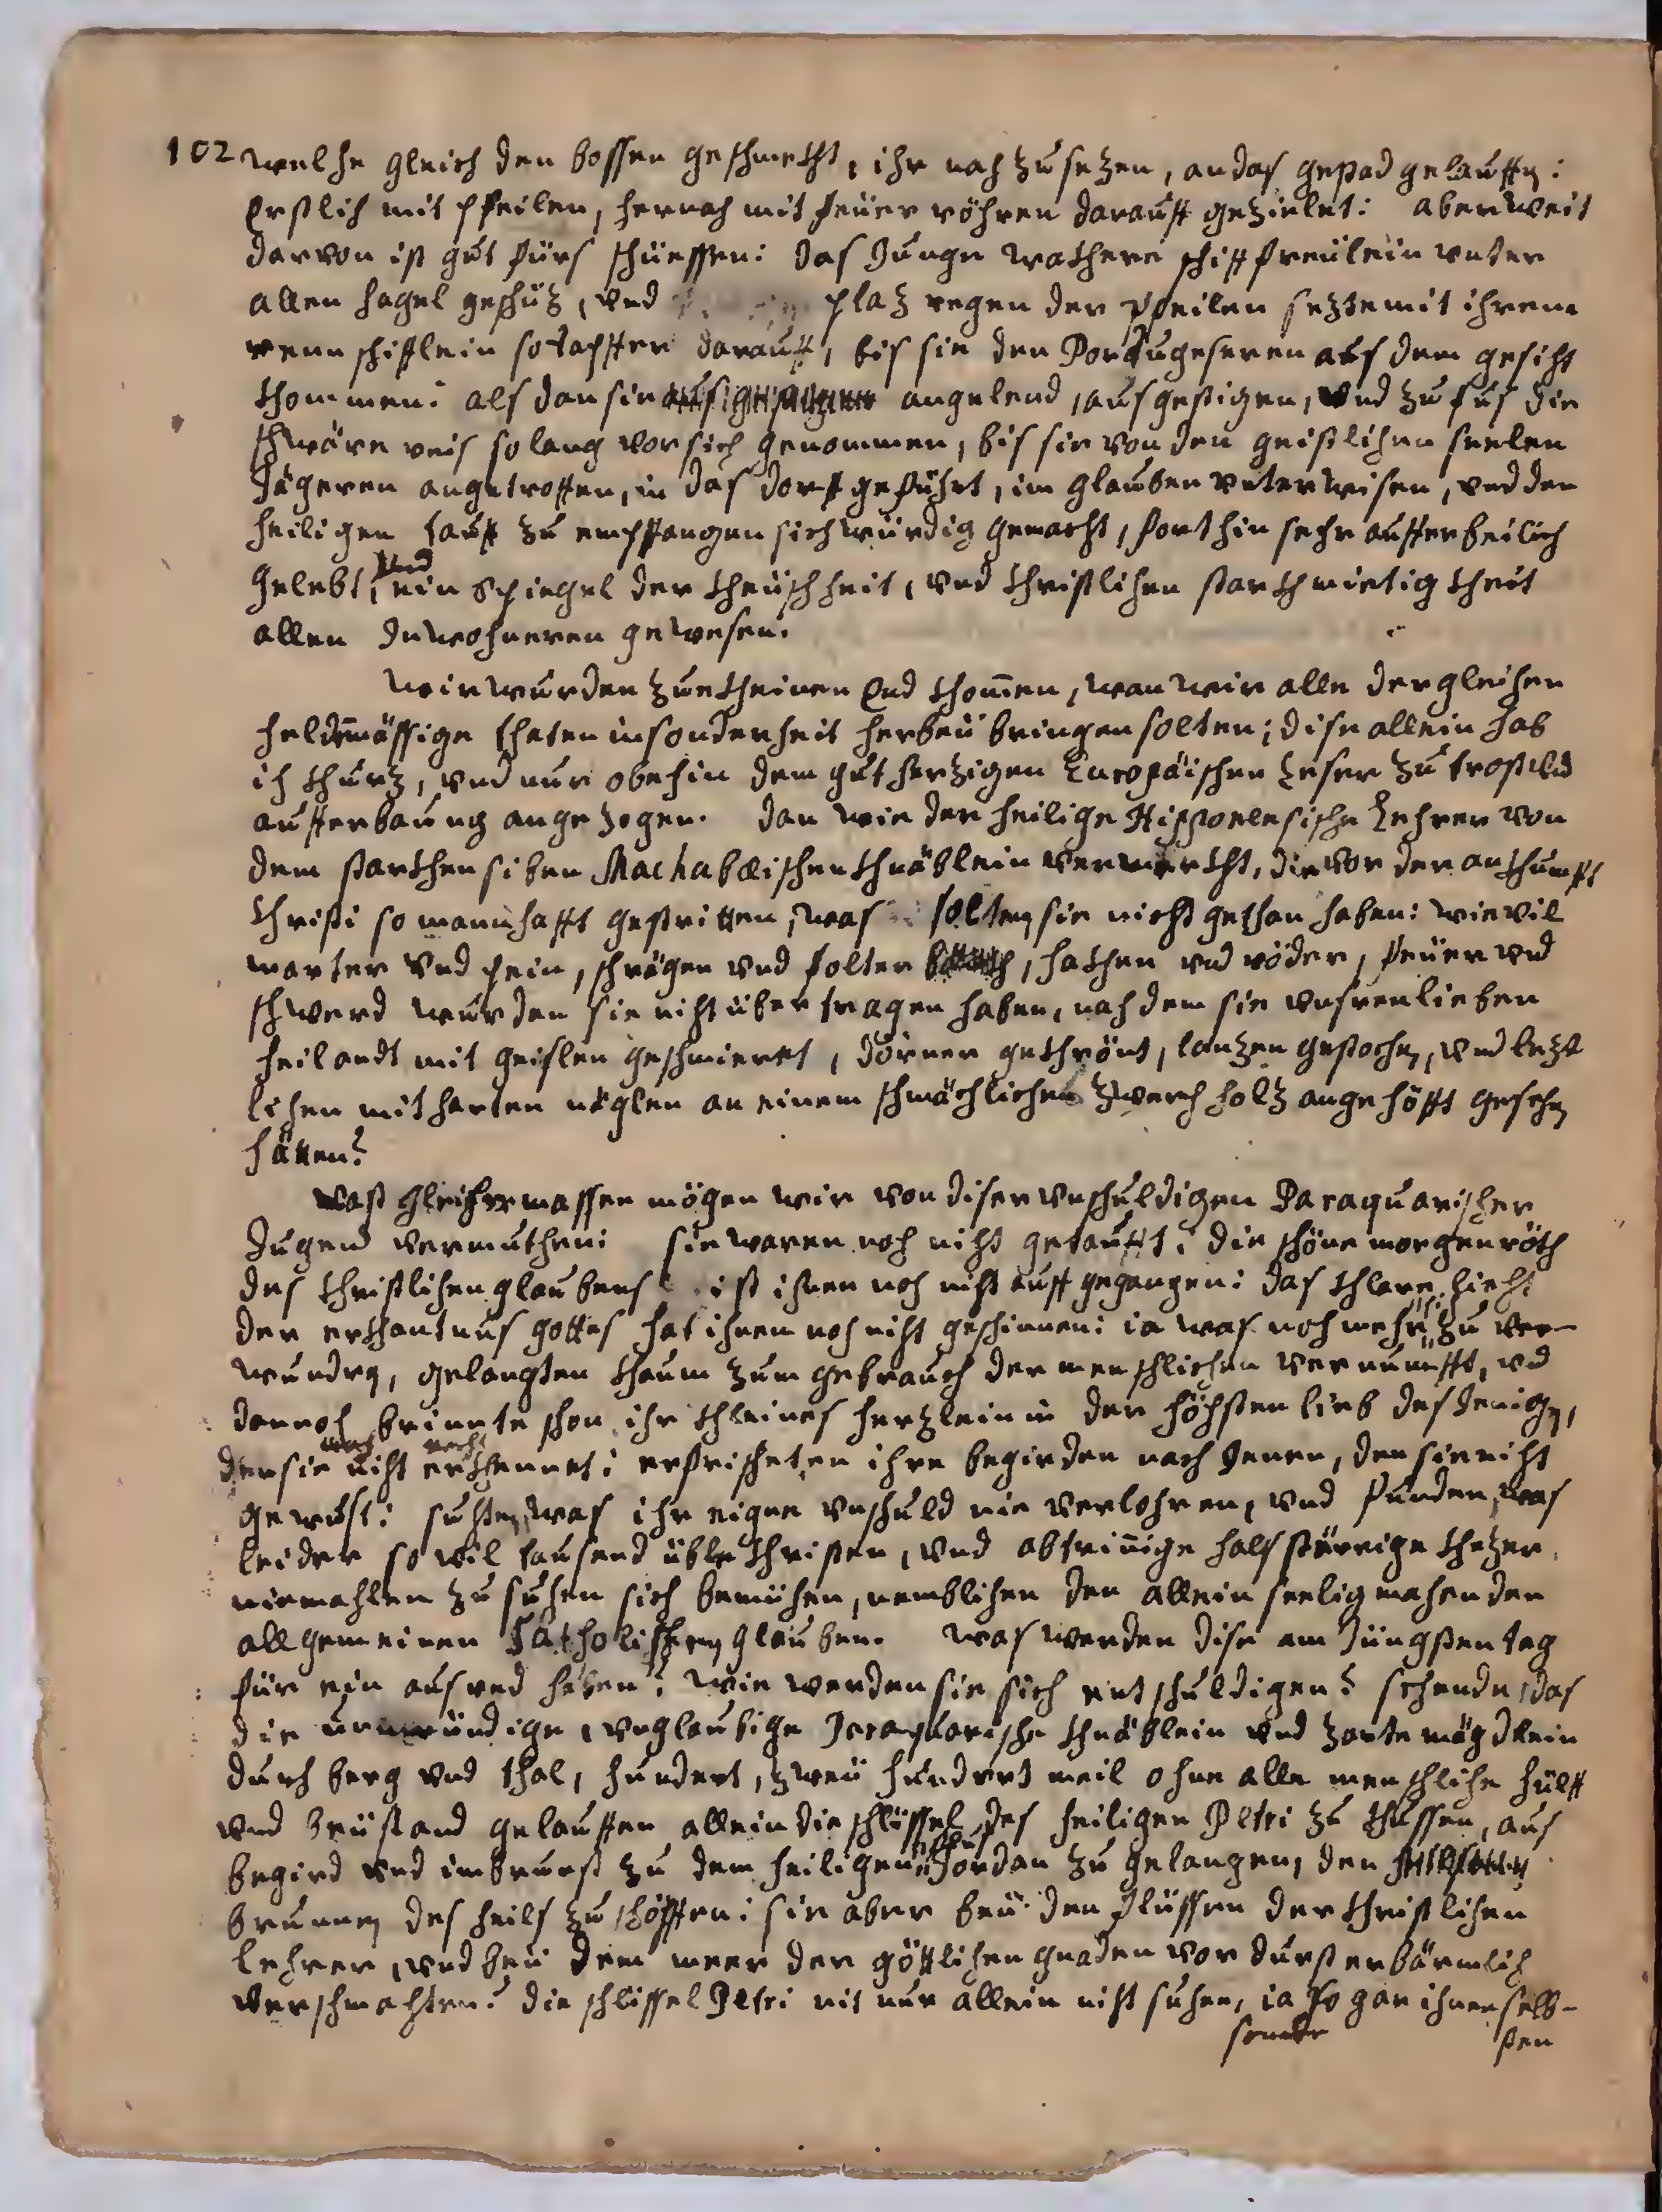 102 welche gleich den bossen geschmeckht, ihr nach zu setzen, an das gestad gelauffen:
Erstlich mit Pfeilen, hernach mit feüer röhren darauff gezielet: aber weit
darvon ist gut fürs schüessen: das Junge wackhere schifffreülein unter
allen hagel geschüz, vnd plaz regen der Pfeilen sezte mit ihrem
renn schifflein so dapffer darauff, bis sie den Portugeseren aus dem gesicht
khommen: als dan sie angelend, aus gestigen, vnd zu fus die
schwäre reis so lang vor sich genommen, bis sie von den geistlichen seelen
Jägeren angetroffen, in das dorff geführt, im glauben vnterwisen, vnd den
heiligen tauff zu empffangen sich würdig gemacht, forthin sehr aufferbeilich
gelebt, vnd ein Spiegel der kheüschheit, vnd christlichen starckhmietigkheit
allen Inwohneren gewesen.
Wir wurden zue kheinen End khommen, wan wir alle dergleichen
heldtmässige thaten insonderheit herbeü bringen solten; dise allein hab
ich khurz, vnd nur obehin dem gutherzigen Europäischen Leser zu trost vnd
aufferbauung angezogen. dan wie der heilige Hipponesische Lehrer von
dem starckhen siben Machabæischen khnäblein vermerckht, die vor der ankhunfft
christi so mannhafft gestritten, was solten sie nicht gethan haben: wie vil
marter vnd pein, schrägen vnd folter, hackhen vnd röder, feüer vnd
schwerd wurden sie nicht übertragen haben, nach dem sie vnsren lieben
heilandt mit geislen geschmieret, dörner gekhrönt, lanzen gestochen, vnd lezt
lichen mit harten näglen an einem schmächlichen zwerch holz angehöfft gesehen
hätten?
Vast gleicher massen mögen wir von diser vnschuldigen Paraquarischer
Jugend vermuthen: sie waren noch nicht getaufft: die schöne morgenröth
des christlichen glaubens ist ihnen noch nicht auff gegangen: das khlare liecht
der erkhantnus gottes hat ihnen noch nicht geschinnen: ia was noch mehr zu ver-
wundren, gelangten khaum zum gebrauch der menschlichen vernunfft, vnd
dannoch brinnte schon ihr khleines herzlein in der höchsten lieb desienigen,
den sie noch nicht recht erkhennet: erfrischeten ihre begirden nach Jenen, den sie nicht
gewust: suchten, was ihr eigne vnschuld nie verlohren, vnd funden, was
leider so vil tausend üble christen, vnd abtrinnige halsstärrige khezer
niemahlen zu suchen sich bemühen, nemblichen den allein seeligmachenden
allgemeinen Catholischen glauben. was werden dise am Jüngsten tag
für ein ausred haben? wie werden sie sich entschuldigen? sehende, das
die unmündige, vnglaubige Paraquarische khnäblein vnd zarte mägdlein
durch berg vnd thal, hundert, zweü hundert meil ohne alle menschliche hülff
vnd beüstand gelauffen allein die schlüssel des heiligen Petri zu khussen, aus
begird vnd inbrunst zu dem heiligen Jordan zu gelangen, den
brunnen des heils zu schöpffen: sie aber beü den flüssen der christlichen
lehrer, vnd beü dem meer der göttlichen gnaden vor durst erbärmlich
verschmachten? die schlissel Petri nit nur allein nicht suchen, ia so gar ihnen selb-
sonder sten